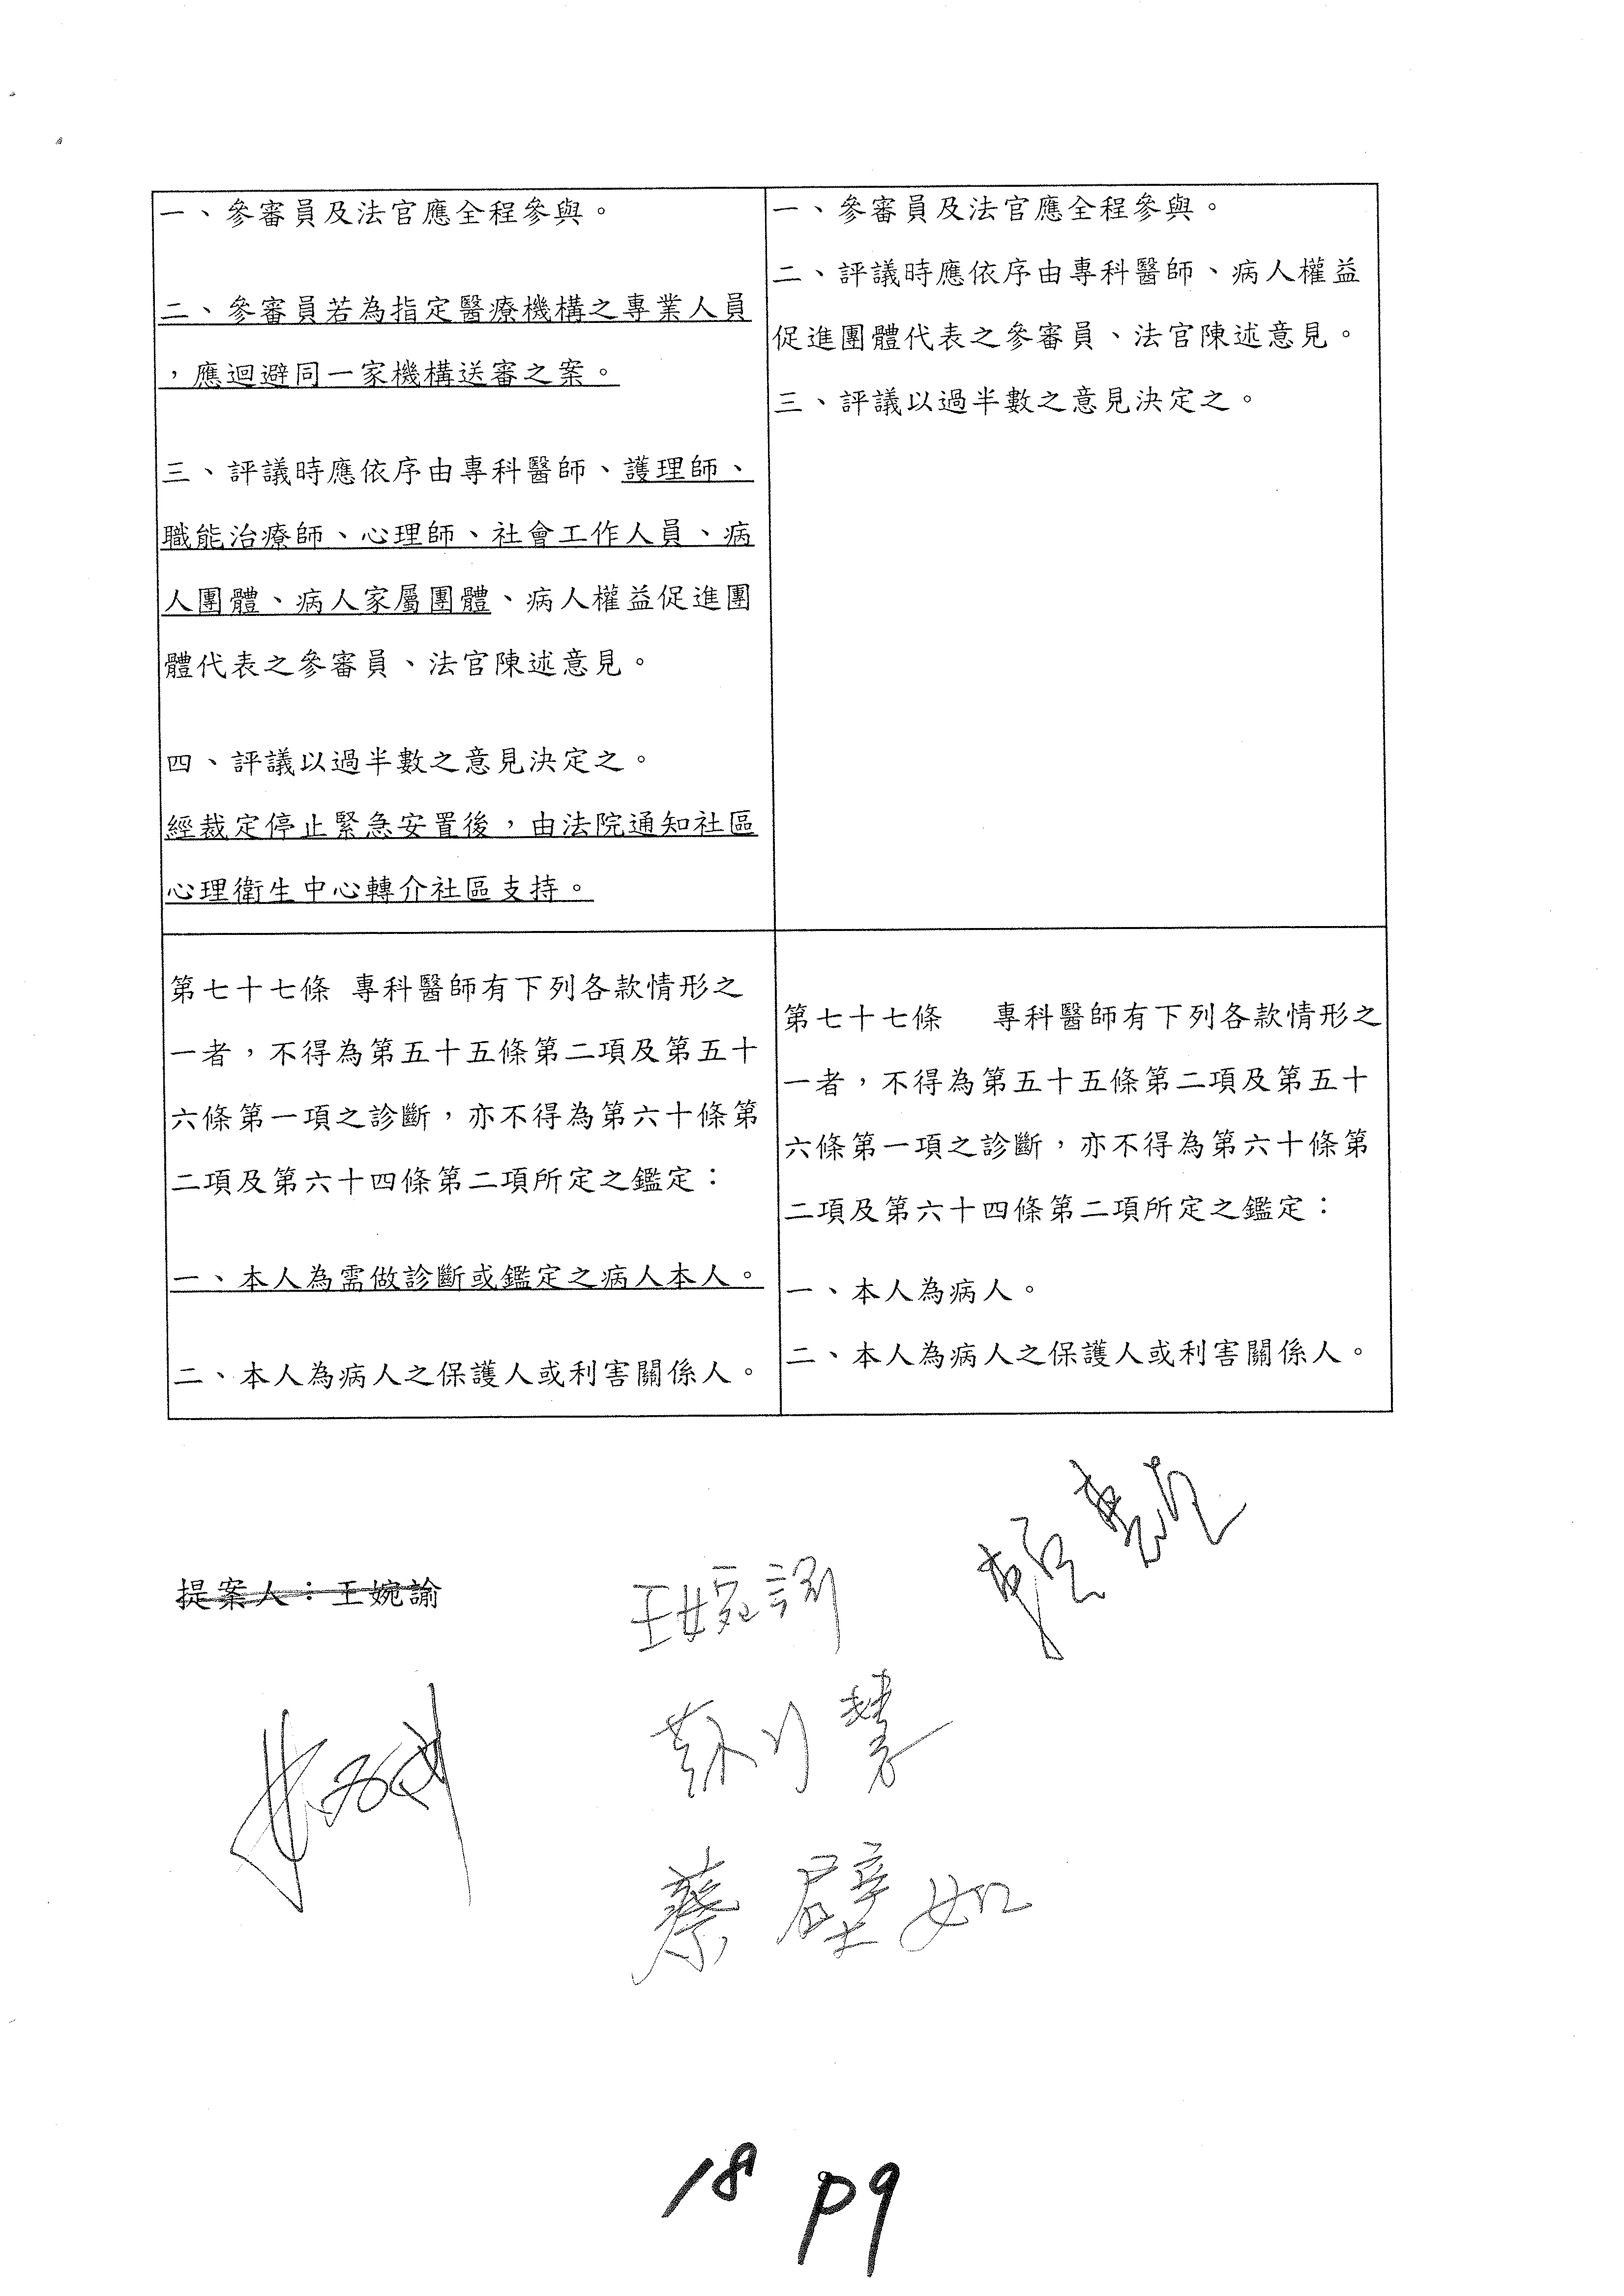 一、參審員及法官應全程參與。
二、參審員若為指定醫療機構之專業人員
，應迴避同一家機構送審之案。
三、評議時應依序由專科醫師、護理師、
職能治療師、心理師、社會工作人員、病
人團體、病人家屬團體、病人權益促進團
體代表之參審員、法官陳述意見。
四、評議以過半數之意見決定之。
經裁定停止緊急安置後，由法院通知社區
心理衛生中心轉介社區支持。
一、參審員及法官應全程參與。
二、評議時應依序由專科醫師、病人權益
促進團體代表之參審員、法官陳述意見。
三、評議以過半數之意見決定之。
第七十七條 專科醫師有下列各款情形之
一者，不得為第五十五條第二項及第五十
六條第一項之診斷，亦不得為第六十條第
二項及第六十四條第二項所定之鑑定：
一、本人為需做診斷或鑑定之病人本人。
二、本人為病人之保護人或利害關係人。
第七十七條　專科醫師有下列各款情形之
一者，不得為第五十五條第二項及第五十
六條第一項之診斷，亦不得為第六十條第
二項及第六十四條第二項所定之鑑定：
一、本人為病人。
二、本人為病人之保護人或利害關係人。
提案人：王婉諭
王婉諭
蔡壁如
18 P9